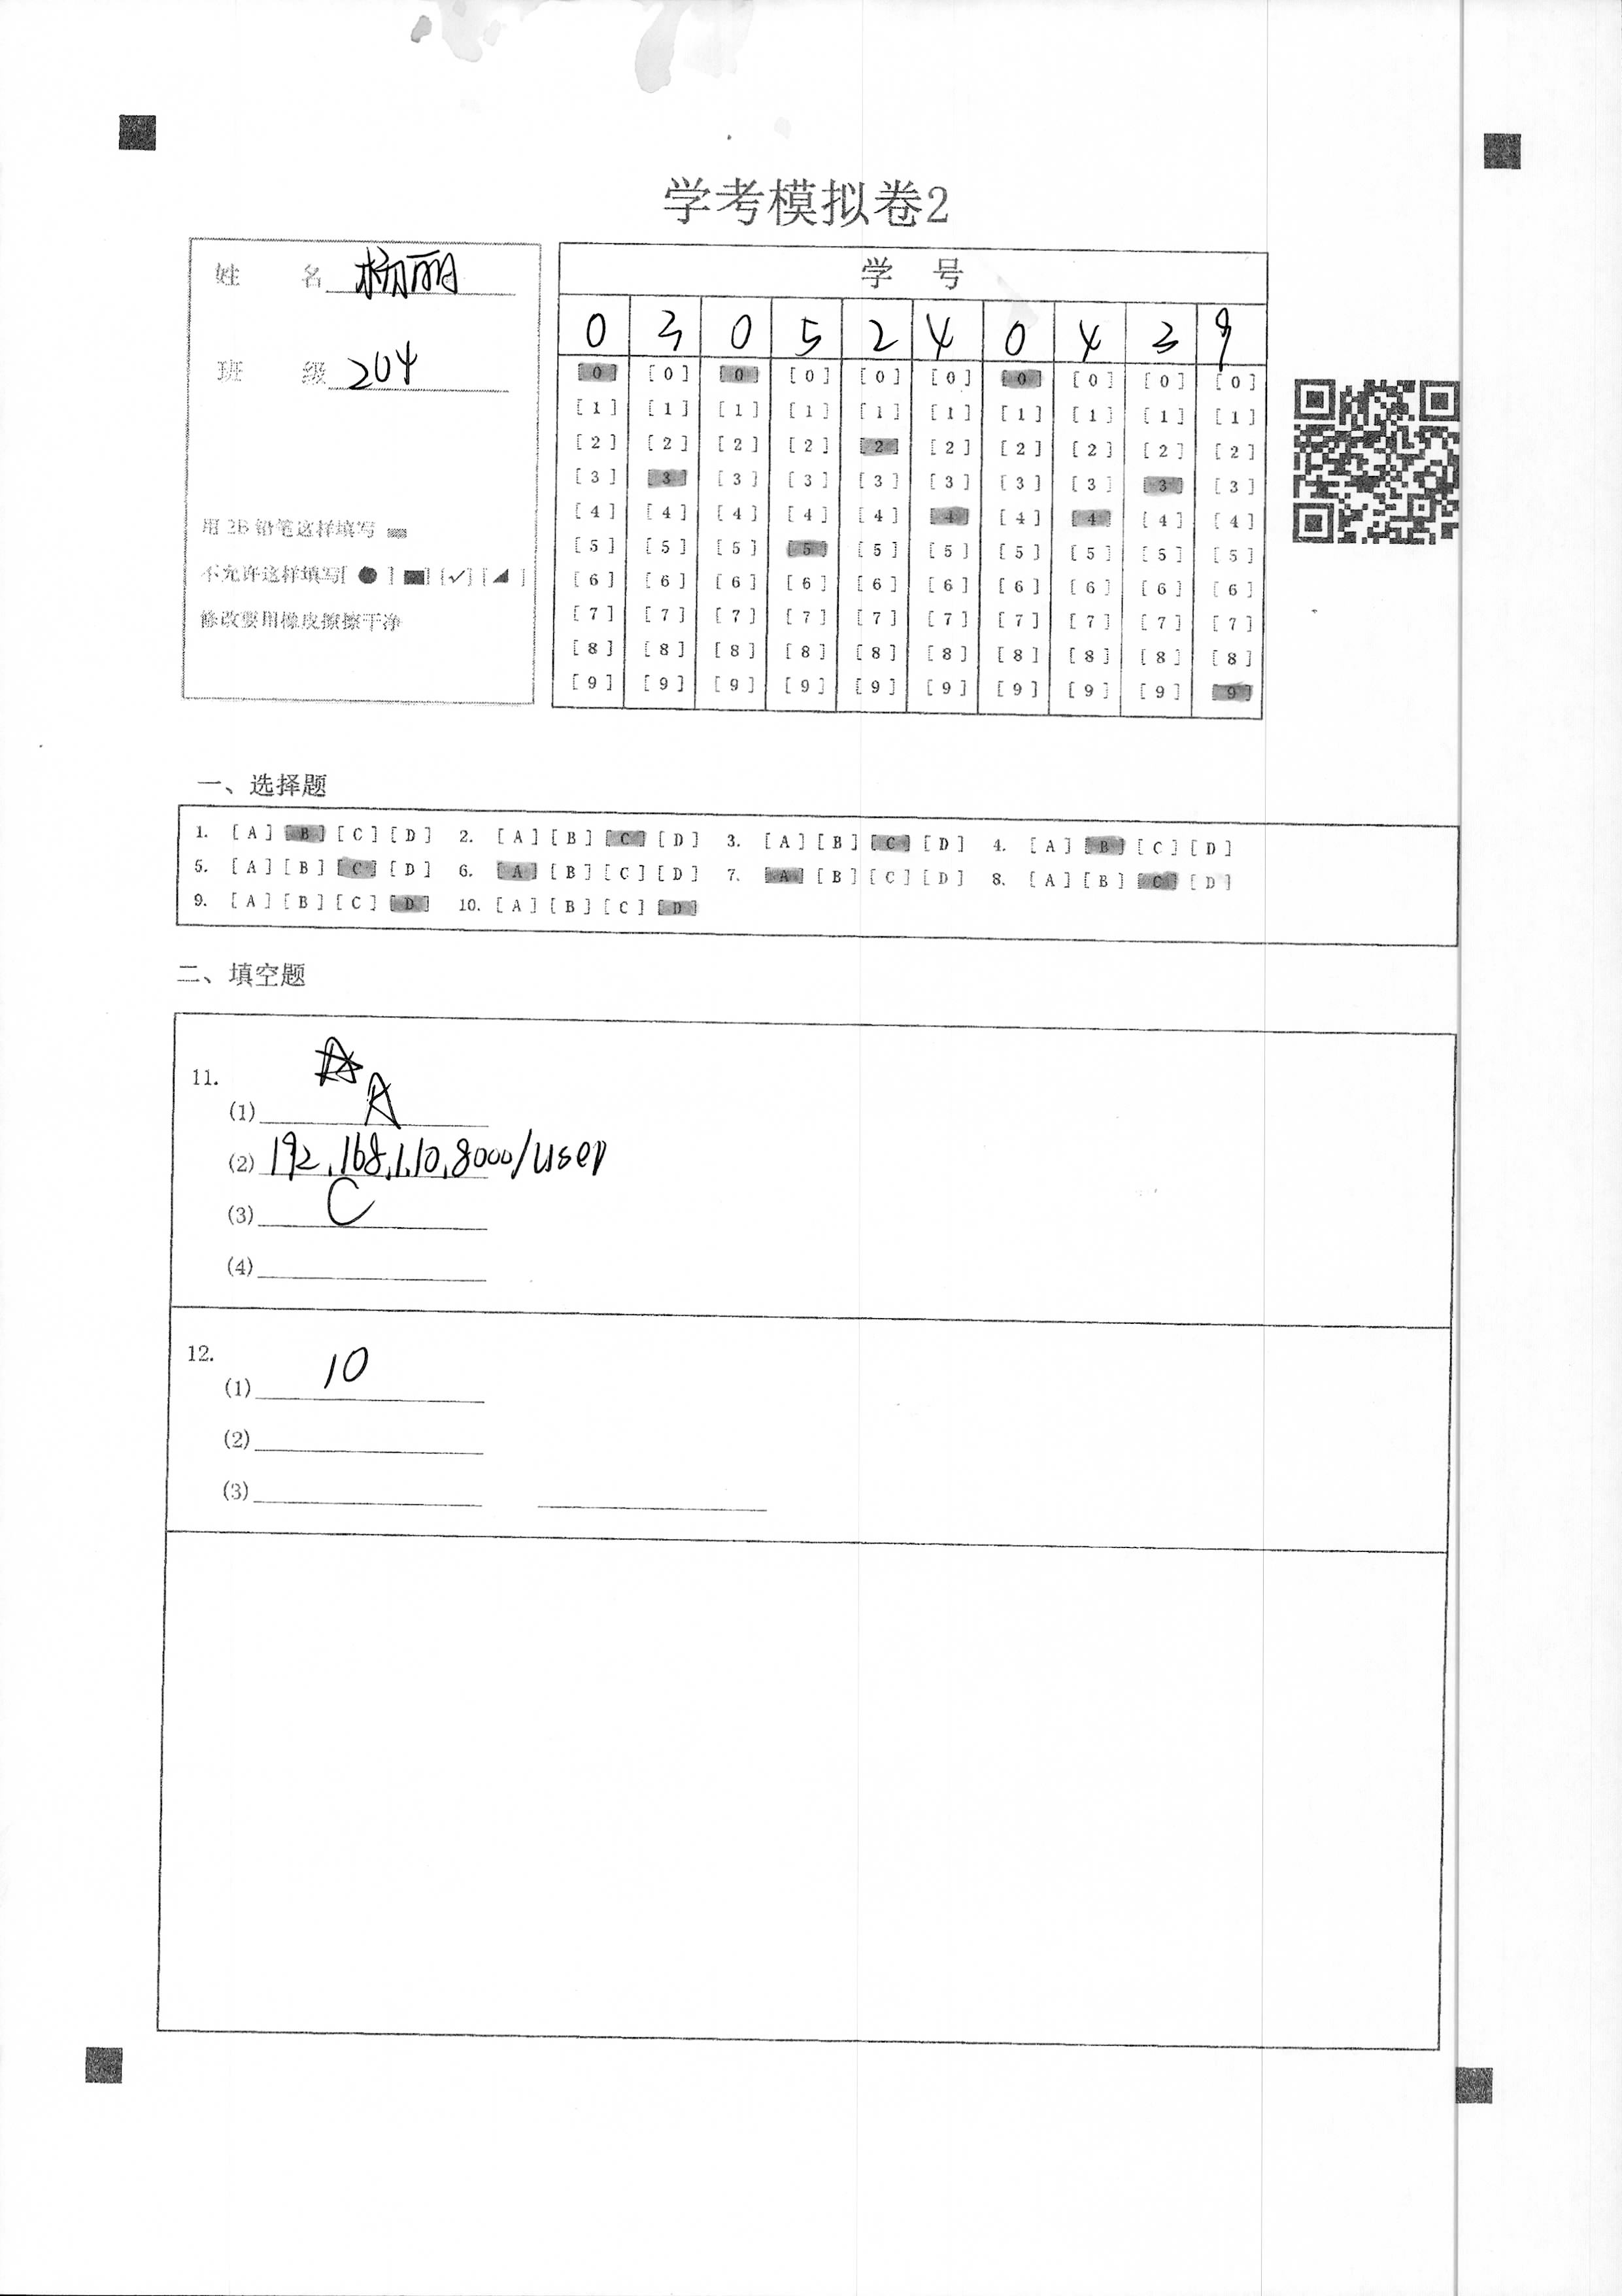 学考模拟卷2
姓 名 杨丽
班 级 204
用 2B 铅笔这样填写
不允许这样填写[ ● ] [ ] [✓] [ ]
修改要用橡皮擦擦干净
学 号
0 3 0 5 2 4 0 4 3 9
[0] [0] [0] [0] [0] [0] [0] [0] [0] [0]
[1] [1] [1] [1] [1] [1] [1] [1] [1] [1]
[2] [2] [2] [2] [2] [2] [2] [2] [2] [2]
[3] [3] [3] [3] [3] [3] [3] [3] [3] [3]
[4] [4] [4] [4] [4] [4] [4] [4] [4] [4]
[5] [5] [5] [5] [5] [5] [5] [5] [5] [5]
[6] [6] [6] [6] [6] [6] [6] [6] [6] [6]
[7] [7] [7] [7] [7] [7] [7] [7] [7] [7]
[8] [8] [8] [8] [8] [8] [8] [8] [8] [8]
[9] [9] [9] [9] [9] [9] [9] [9] [9] [9]
一、选择题
1. [A] [B] [C] [D] 2. [A] [B] [C] [D] 3. [A] [B] [C] [D] 4. [A] [B] [C] [D]
5. [A] [B] [C] [D] 6. [A] [B] [C] [D] 7. [A] [B] [C] [D] 8. [A] [B] [C] [D]
9. [A] [B] [C] [D] 10. [A] [B] [C] [D]
二、填空题
11.
(1) A
(2) 192.168.1.10.8000/user
(3) C
(4)
12.
(1) 10
(2)
(3)